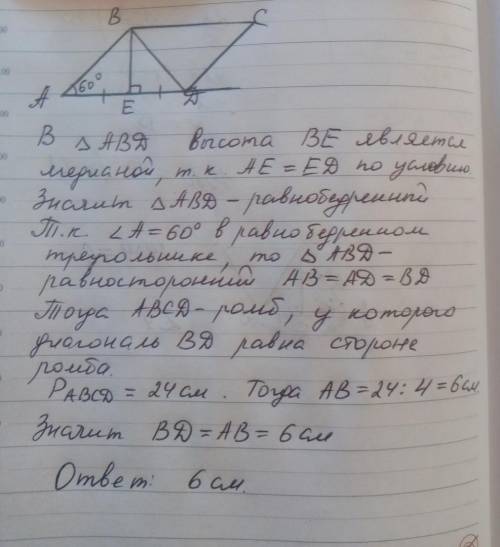 B C
A 60° E D
В △ABD высота BE является
медианой, т.к. AE = ED по условию.
Значит △ABD – равнобедренный
Т.к. ∠A = 60° в равнобедренном
треугольнике, то △ABD –
равносторонний AB = AD = BD
Тогда ABCD – ромб, у которого
диагональ BD равна стороне
ромба.
P_ABCD = 24 см. Тогда AB = 24 : 4 = 6 см
Значит BD = AB = 6 см
Ответ: 6 см.